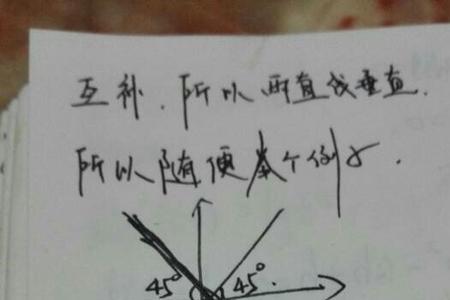 互补.所以两直线垂直.
所以随便举个例子.
45° 45°.